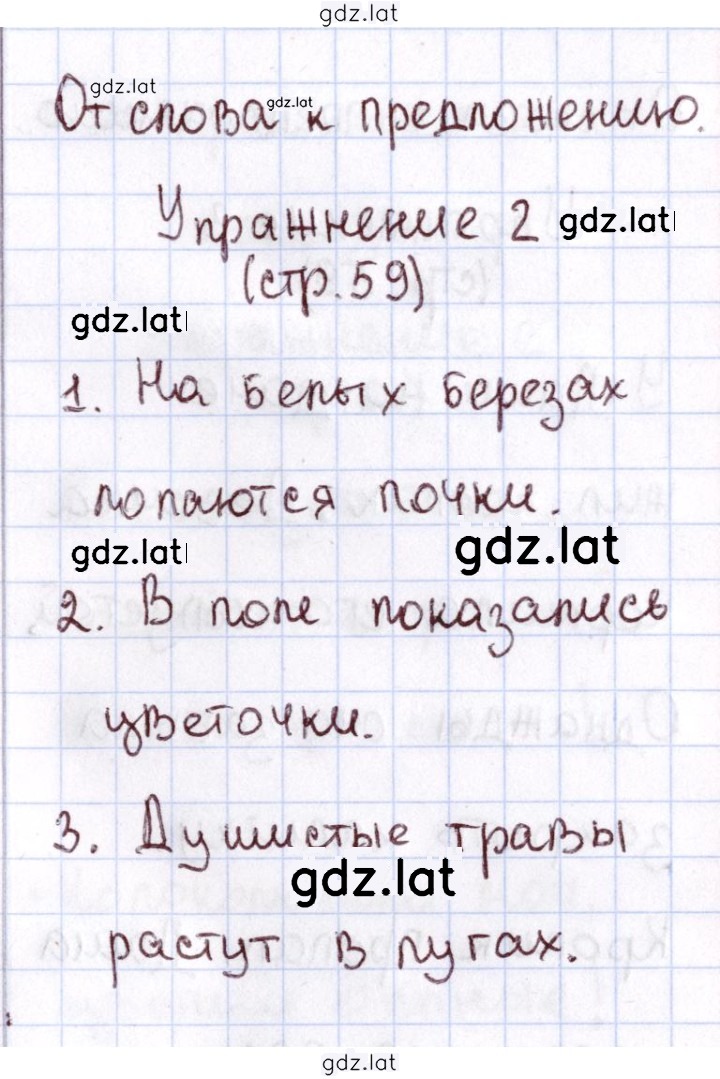 gdz.lat
gdz.lat
От слова к предложению.
gdz.lat
Упражнение 2
gdz.lat
(стр. 59)
gdz.lat
1. На белых березах
лопаются почки.
gdz.lat
gdz.lat
2. В поле показались
цветочки.
3. Душистые травы
gdz.lat
растут в лугах.
gdz.lat